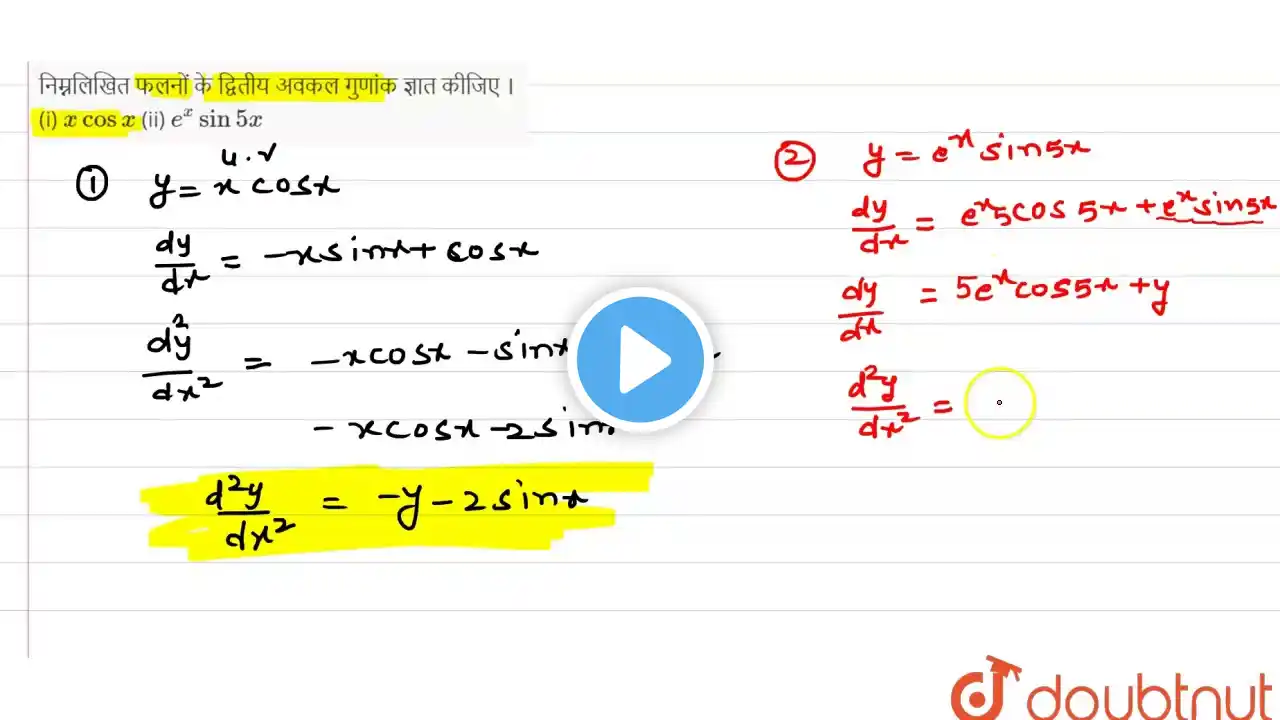 निम्नलिखित फलनों के द्वितीय अवकल गुणांक ज्ञात कीजिए ।
(i) x cos x (ii) e^x sin 5x
u.v
① y = x cosx
dy/dx = -x sinx + cosx
d²y/dx² = -x cosx - sinx
- x cosx - 2 sin
d²y/dx² = -y - 2 sinx
② y = e^x sin5x
dy/dx = e^x 5cos 5x + e^x sin5x
dy/dx = 5e^x cos5x + y
d²y/dx² =
doubtnut